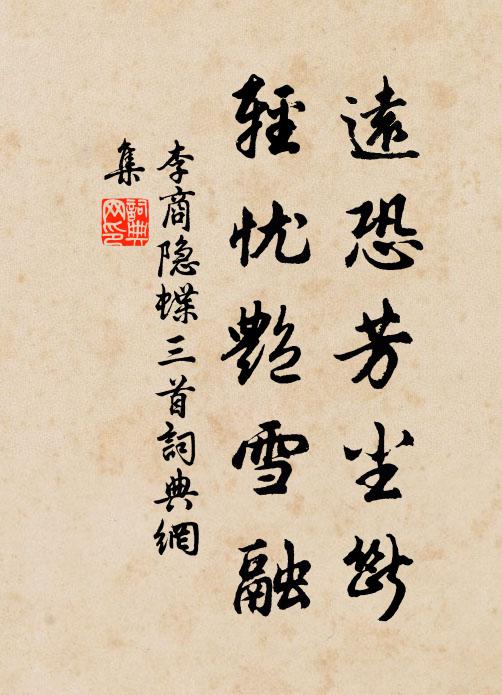 遠恐芳尘斷
輕忧艶雪融
李商隐蝶三首詞典網
集
詞典
网印